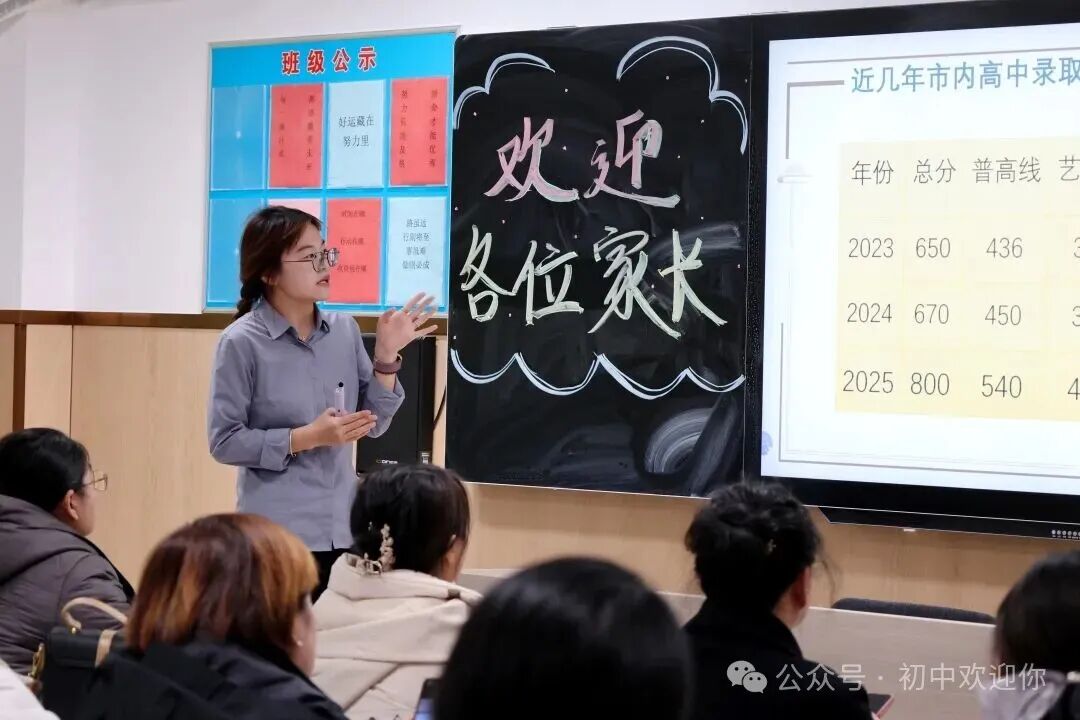 班级公示
好运藏在
努力里
路虽远
行则将至
事虽难
做则必成
欢迎
各位家长
近几年市内高中录取
年份 总分 普高线 艺
2023 650 436 3
2024 670 450 3
2025 800 540 4
公众号·初中欢迎你